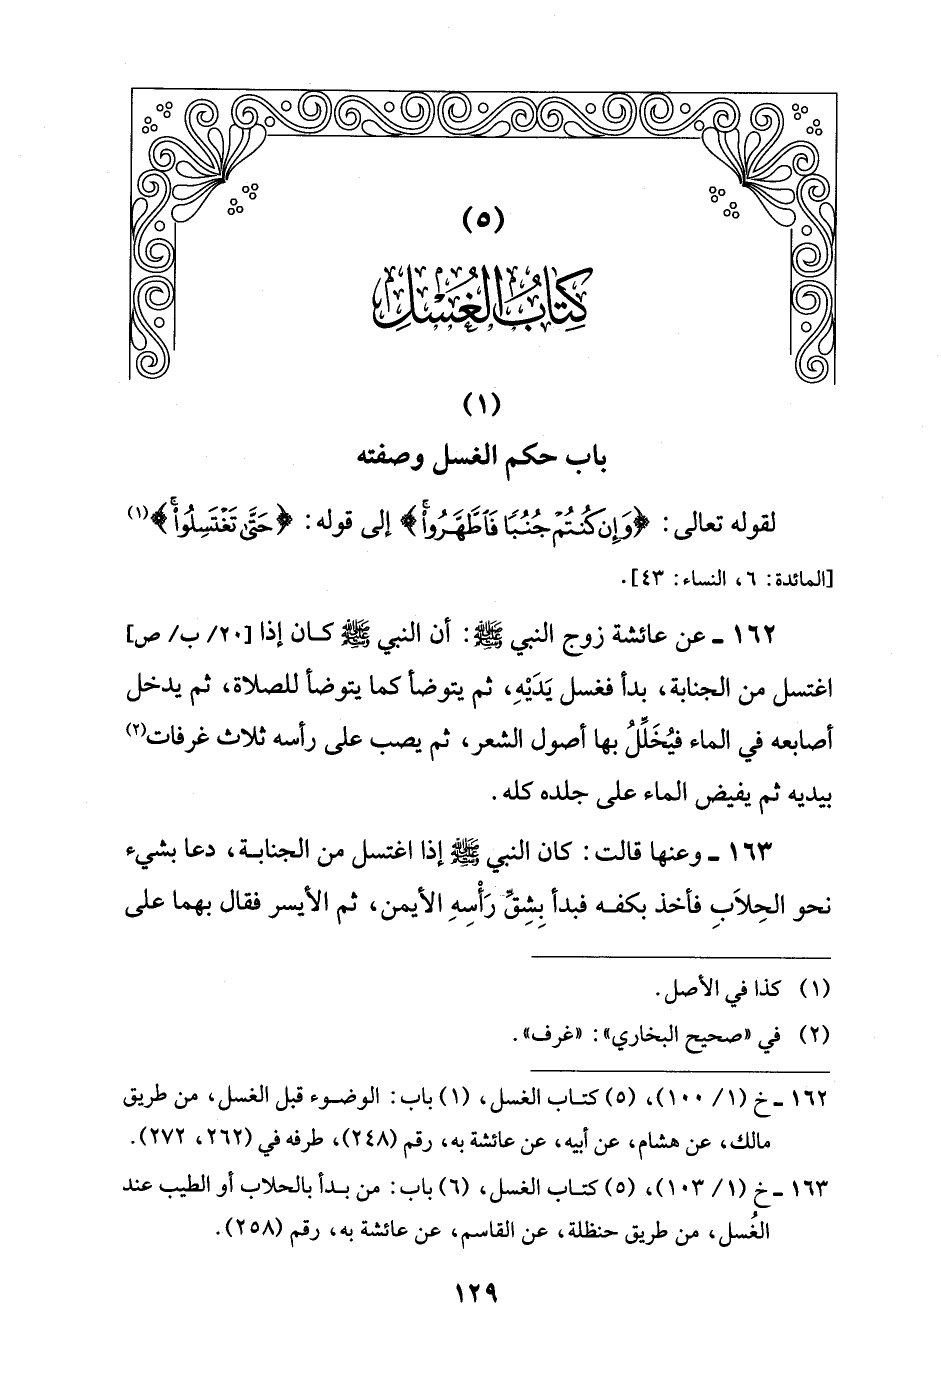 (٥)
كِتَابُ الْغُسْلِ
(١)
باب حكم الغسل وصفته
لقوله تعالى: ﴿وَإِن كُنتُمْ جُنُبًا فَاطَّهَّرُوا۟ۚ﴾ إلى قوله: ﴿حَتَّىٰ تَغْتَسِلُوا۟ۚ﴾(١)
[المائدة: ٦، النساء: ٤٣].
١٦٢ ـ عن عائشة زوج النبي ﷺ: أن النبي ﷺ كـان إذا [٢٠/ ب/ ص]
اغتسل من الجنابة، بدأ فغسل يَدَيْهِ، ثم يتوضأ كما يتوضأ للصلاة، ثم يدخل
أصابعه في الماء فيُخَلِّلُ بها أصول الشعر، ثم يصب على رأسه ثلاث غرفات(٢)
بيديه ثم يفيض الماء على جلده كله.
١٦٣ ـ وعنها قالت: كان النبي ﷺ إذا اغتسل من الجنابـة، دعا بشيء
نحو الحِلاَبِ فأخذ بكفـه فبدأ بِشِقِّ رَأْسِهِ الأيمن، ثم الأيسر فقال بهما على
(١) كذا في الأصل.
(٢) في «صحيح البخاري»: «غرف».
١٦٢ ـ خ (١/ ١٠٠)، (٥) كتـاب الغسل، (١) باب: الوضـوء قبل الغسل، من طريق
مالك، عن هشام، عن أبيه، عن عائشة به، رقم (٢٤٨)، طرفه في (٢٦٢، ٢٧٢).
١٦٣ ـ خ (١/ ١٠٣)، (٥) كتـاب الغسل، (٦) باب: من بـدأ بالحلاب أو الطيب عند
الغُسل، من طريق حنظلة، عن القاسم، عن عائشة به، رقم (٢٥٨).
١٢٩